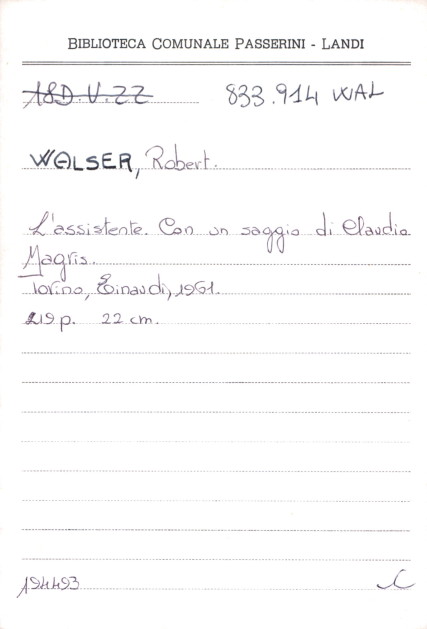 BIBLIOTECA COMUNALE PASSERINI - LANDI
18D.V.22 833.914 WAL
WALSER, Robert.
L'assistente. Con un saggio di Claudio
Magris.
Torino, Einaudi, 1961.
219 p. 22 cm.
194493